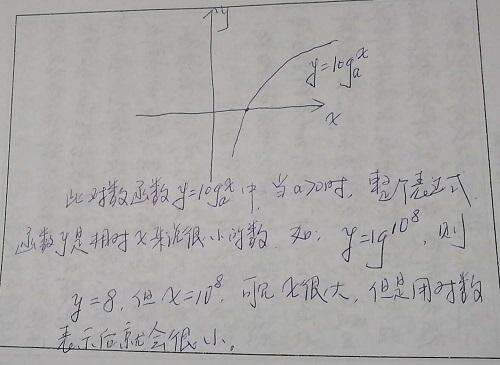 y
y=log_a^x
x
此对数函数 y=log_a^x 中, 当a>0时, 整个表达式
函数y是相对x来说很小的数. 如: y=lg^10^8, 则
y=8, 但x=10^8, 可见x很大, 但是用对数
表示后就会很小。